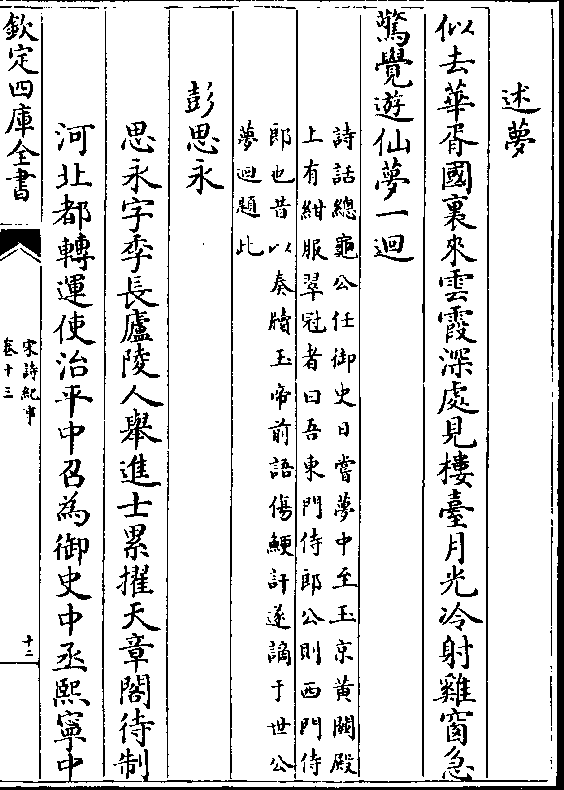 述夢
似去華胥國裏來雲霞深處見樓臺月光冷射雞窗急
驚覺遊仙夢一迴
詩話總龜公任御史日嘗夢中至玉京黃闕殿
上有紺服翠冠者曰吾東門侍郎公則西門侍
郎也昔以奏牘玉帝前語傷鯁訐遂謫于世公
夢迴題此
彭思永
思永字季長廬陵人舉進士累擢天章閣待制
河北都轉運使治平中召為御史中丞熙寧中
欽定四庫全書
宋詩紀事
卷十三
十二